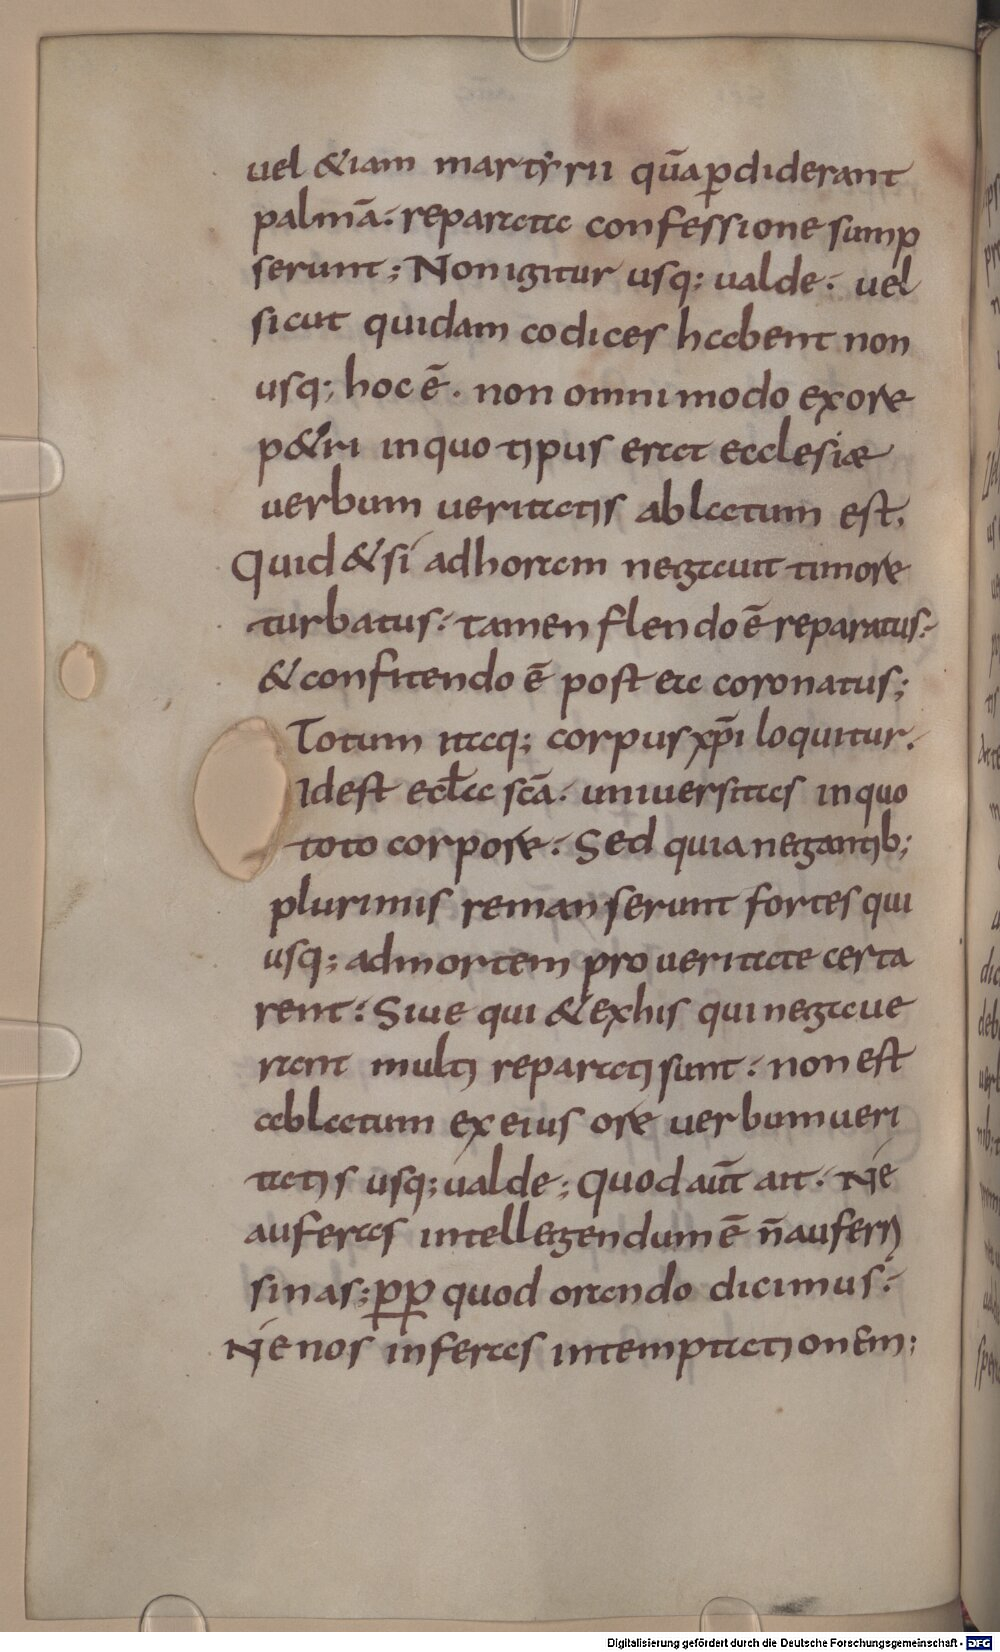 uel &iam martẏrii quāꝑdiderant
palmā: reparata confessione sump
serunt; Non igitur usq; ualde: uel
sicut quidam codices habent non
usq; hoc ē. non omni modo ex ore
p&ri in quo tipus erat ecclesiæ
uerbum ueritatis ablatum est.
Quid &si ad horam negauit timore
turbatus: tamen flendo ē reparatus:
& confitendo ē postea coronatus;
Totum itaq; corpus xp̄i loquitur.
Id est eccła scā. uniuersitas in quo
toto corpore: Sed quia negantib;
plurimis remanserunt fortes qui
usq; ad mortem pro ueritate certa
rent: Siue qui & ex his qui negaue
rant multi reparati sunt: non est
ablatum ex eius ore uerbum ueri
tatis usq; ualde; Quod aut̄ ait. Ne
auferas intellegendum ē n̄ auferri
sinas; ꝓꝑ quod orando dicimus:
Ne nos inferas in temptationem;
Digitalisierung gefördert durch die Deutsche Forschungsgemeinschaft - DFG